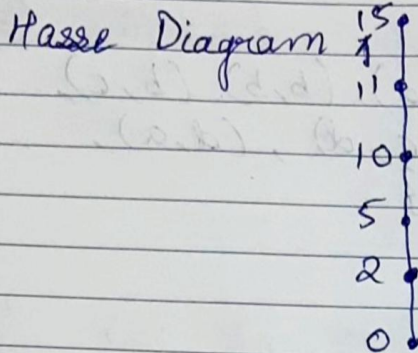 Hasse Diagram
15
11
10
5
2
0